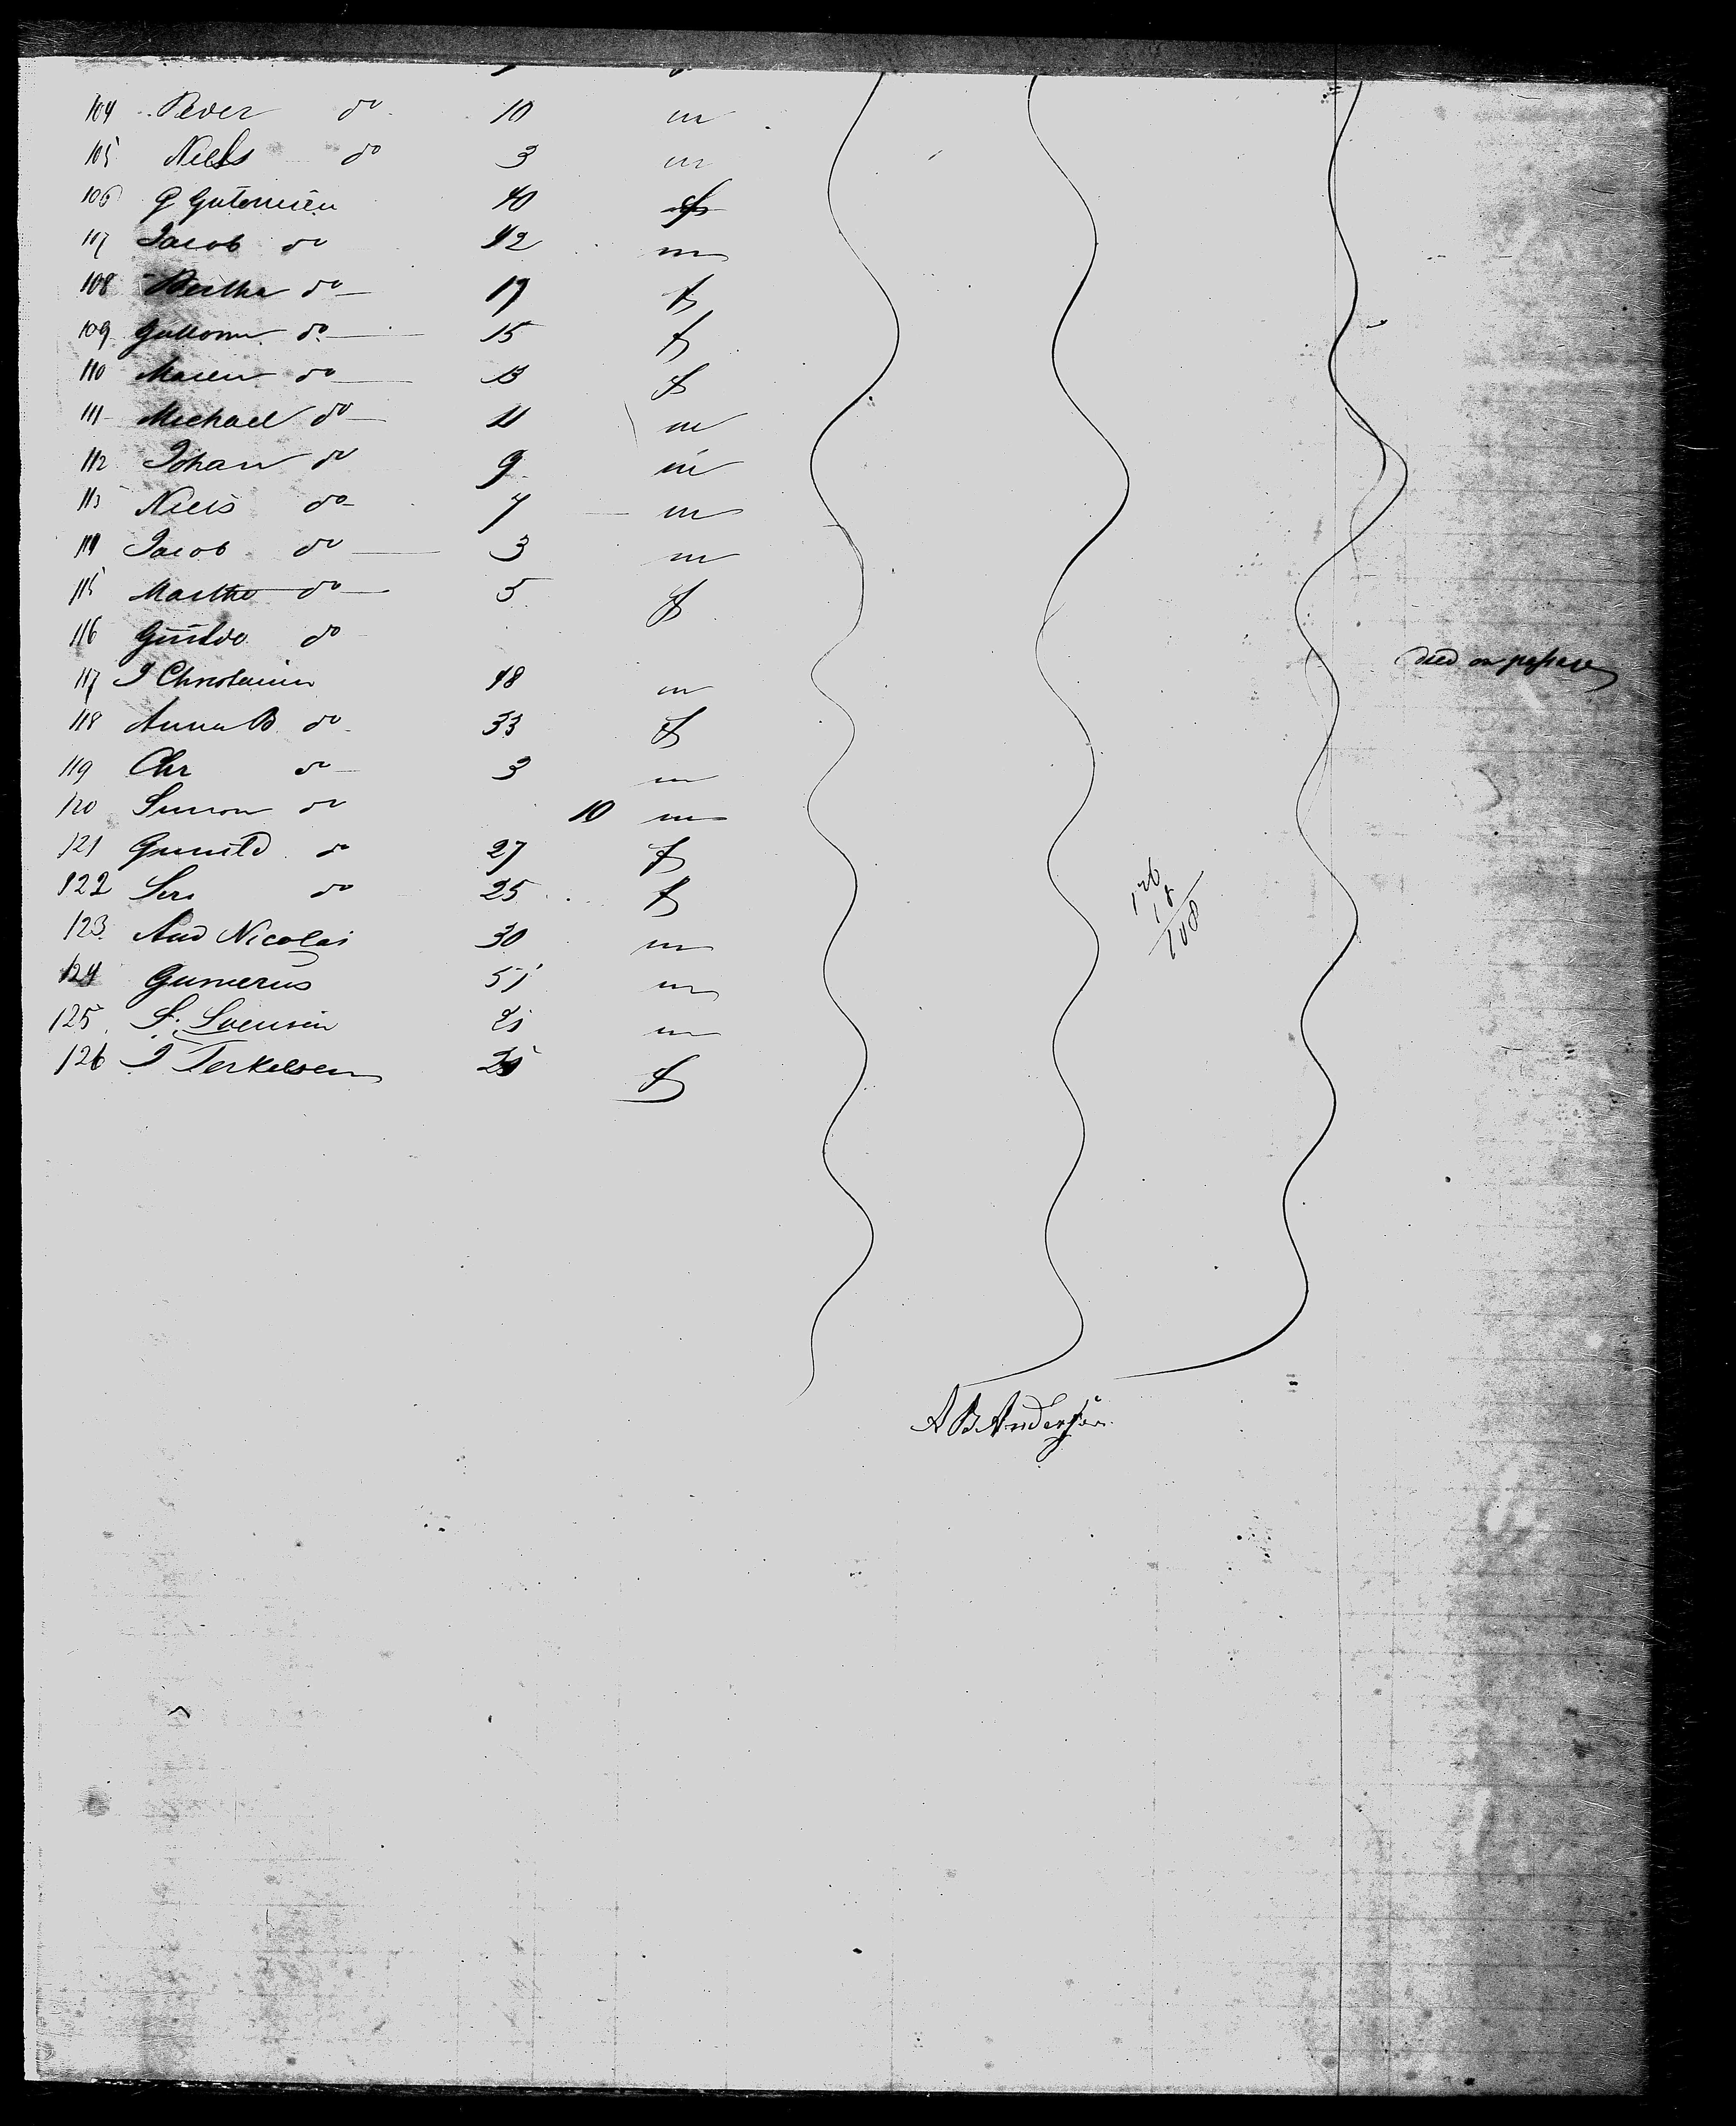 104 Peder do 10 m
105 Niels do 3 m
106 G 40 f
107 Jacob do 42 m
108 Berthe do 17 f
109 do 15 f
110 Maren do 13 f
111 Michael do 11 m
112 Johan do 9 m
113 Niels do 7 m
114 Jacob do 3 m
115 Marthe do 5 f
116 do died on passage
117 J 48 m
118 Anna B do 33 f
119 Chr do 3 m
120 Simon do 10 m
121 Gunild do 27 f
122 do 25 f
123 And Nicolai 30 m
124 Gumerus 51 m
125 S. Svensen m
126 J Terkelsen f
126
18
108
A B Anderson